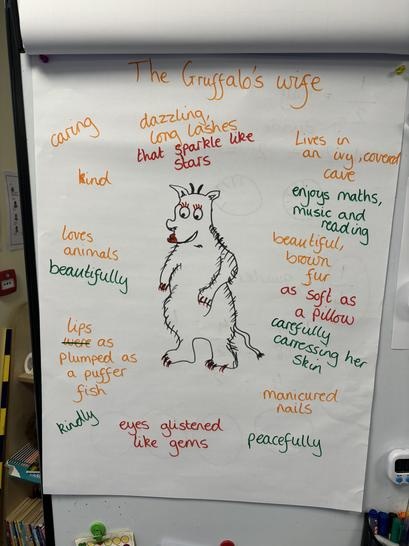 The Gruffalo's wife
caring
dazzling,
long lashes
that sparkle like
stars
Lives in
an ivy, covered
cave
kind
enjoys maths,
music and
reading
loves
animals
beautifully
beautiful,
brown
fur
as soft as
a pillow
carefully
carressing her
skin
lips
were as
plumped as
a puffer
fish
manicured
nails
kindly
eyes glistened
like gems
peacefully